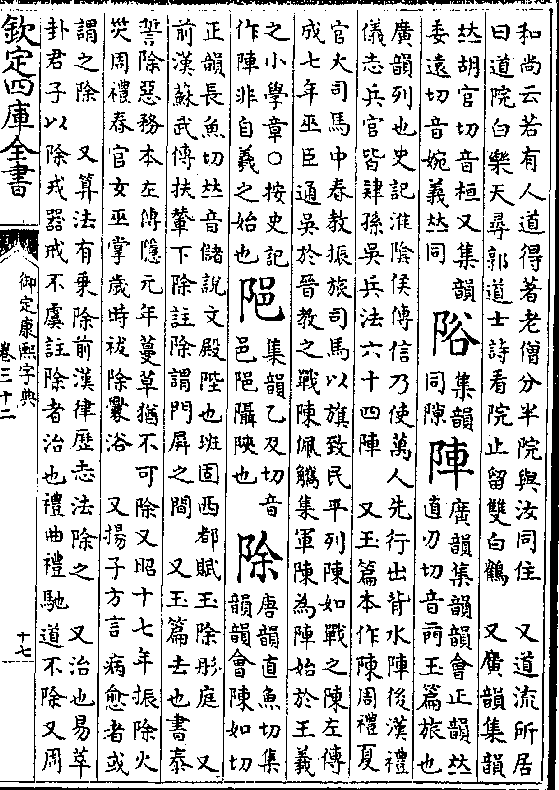 和尚云若有人道得著老僧分半院與汝同住　又道流所居
曰道院白樂天尋郭道士詩看院止留雙白鶴　又廣韻集韻
𠀤胡官切音桓又集韻
委遠切音婉義𠀤同
䧍
集韻
同隙
陣
廣韻集韻韻會正韻𠀤
直刃切音𨳝玉篇旅也
廣韻列也史記淮陰侯傳信乃使萬人先行出背水陣後漢禮
儀志兵官皆肄孫吳兵法六十四陣　又玉篇本作陳周禮夏
官大司馬中春教振旅司馬以旗致民平列陳如戰之陳左傳
成七年巫臣通吳於晉教之戰陳佩觿集軍陳為陣始於王羲
之小學章○按史記
作陣非自羲之始也
䧋
集韻乙及切音
邑䧋隬陝也
除
唐韻直魚切集
韻韻會陳如切
正韻長魚切𠀤音儲說文殿陛也班固西都賦玉除彤庭　又
前漢蘇武傳扶輦下除註除謂門屏之間　又玉篇去也書泰
誓除惡務本左傳隱元年蔓草猶不可除又昭十七年振除火
災周禮春官女巫掌歲時祓除釁浴　又揚子方言病愈者或
謂之除　又算法有乗除前漢律歷志法除之　又治也易萃
卦君子以除戎器戒不虞註除者治也禮曲禮馳道不除又周
欽定四庫全書
御定康熙字典
卷三十二
十七